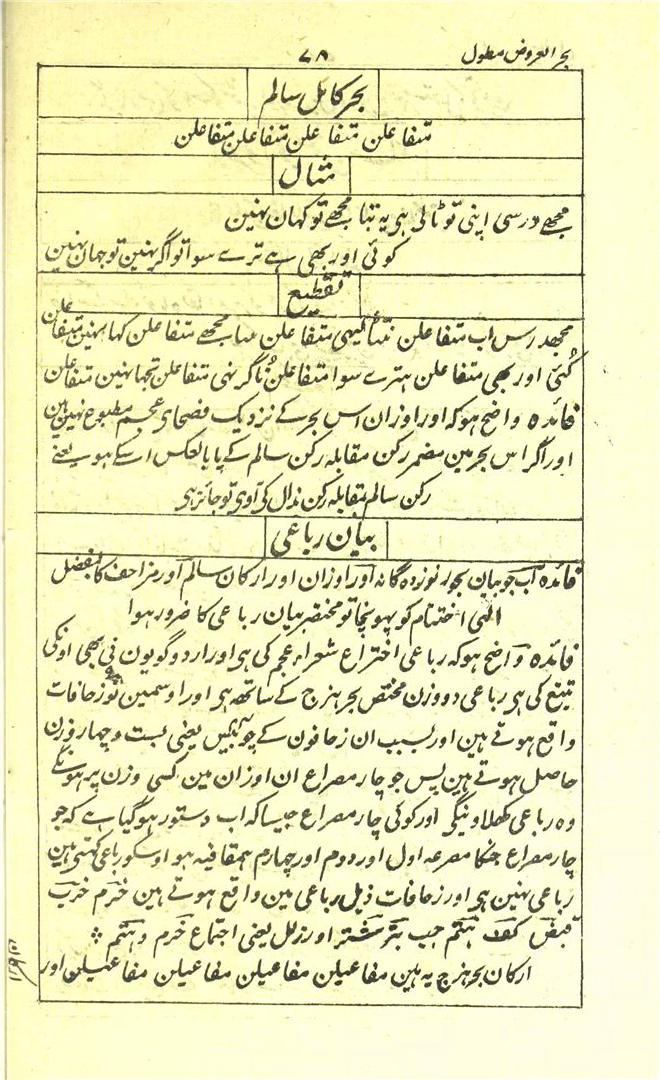 بحر العروض مطول
۷۸
بحر کامل سالم
متفاعلن متفاعلن متفاعلن متفاعلن
مثال
مجھے درسی اپنی تو ٹالی ہی یہ بتا مجھے تو کہان نہین
کوئی اور بھی ہے ترے سوا تو اگر نہین تو جہان نہین
تقطیع
مجھدرس اب متفاعلن نتٹالیہی متفاعلن بتا مجھے متفاعلن کہا نہین متفاعلن
کُئی اور بھی متفاعلن ہترے سوا متفاعلن تُاگر نہی متفاعلن تجہا نہین متفاعلن
فائدہ واضح ہو کہ اور اوزان اس بحر کے نزدیک فصحای عجم مطبوع نہین ہین
اور اگر اس بحر مین مضمر رکن مقابلہ رکن سالم کے یا بالعکس اسکے ہو یعنے
رکن سالم بمقابلہ رکن ندال کی آوی تو جائز ہی
بیان رباعی
فائدہ اب جو بیان بحور نوزدہ گانہ اور اوزان اور ارکان سالم اور مزاحف کا بفضل
الٰہی اختتام کو پہونچا تو مختصر بیان رباعی کا ضرور ہوا
فائدہ واضح ہو کہ رباعی اختراع شعراء عجم کی ہی اور اردو گویون نی بھی اونکی
تتبع کی ہی رباعی دو وزن مختص بحر ہزج کے ساتھ ہی اور اوسمین نو زحافات
واقع ہوتے ہین اور بسبب ان زحافون کے چوبیس یعنی بست و چہار وزن
حاصل ہوتے ہین پس جو چار مصراع ان اوزان مین کسی وزن پر ہونگے
وہ رباعی کھلاوینگی اور کوئی چار مصراع جیسا کہ اب دستور ہو گیا ہے کہ جو
چار مصراع جنکا مصرعہ اول اور دوم اور چہارم ہمقافیہ ہو اوسکو رباعی کہتی ہین
رباعی نہین ہی اور زحافات ذیل رباعی مین واقع ہوتے ہین خرم خرب
قبض کف ہتم جب بتر شتر اور زلل یعنی اجتماع خرم و ہتم
ارکان بحر ہزج یہ ہین مفاعیلن مفاعیلن مفاعیلن مفاعیلن اور